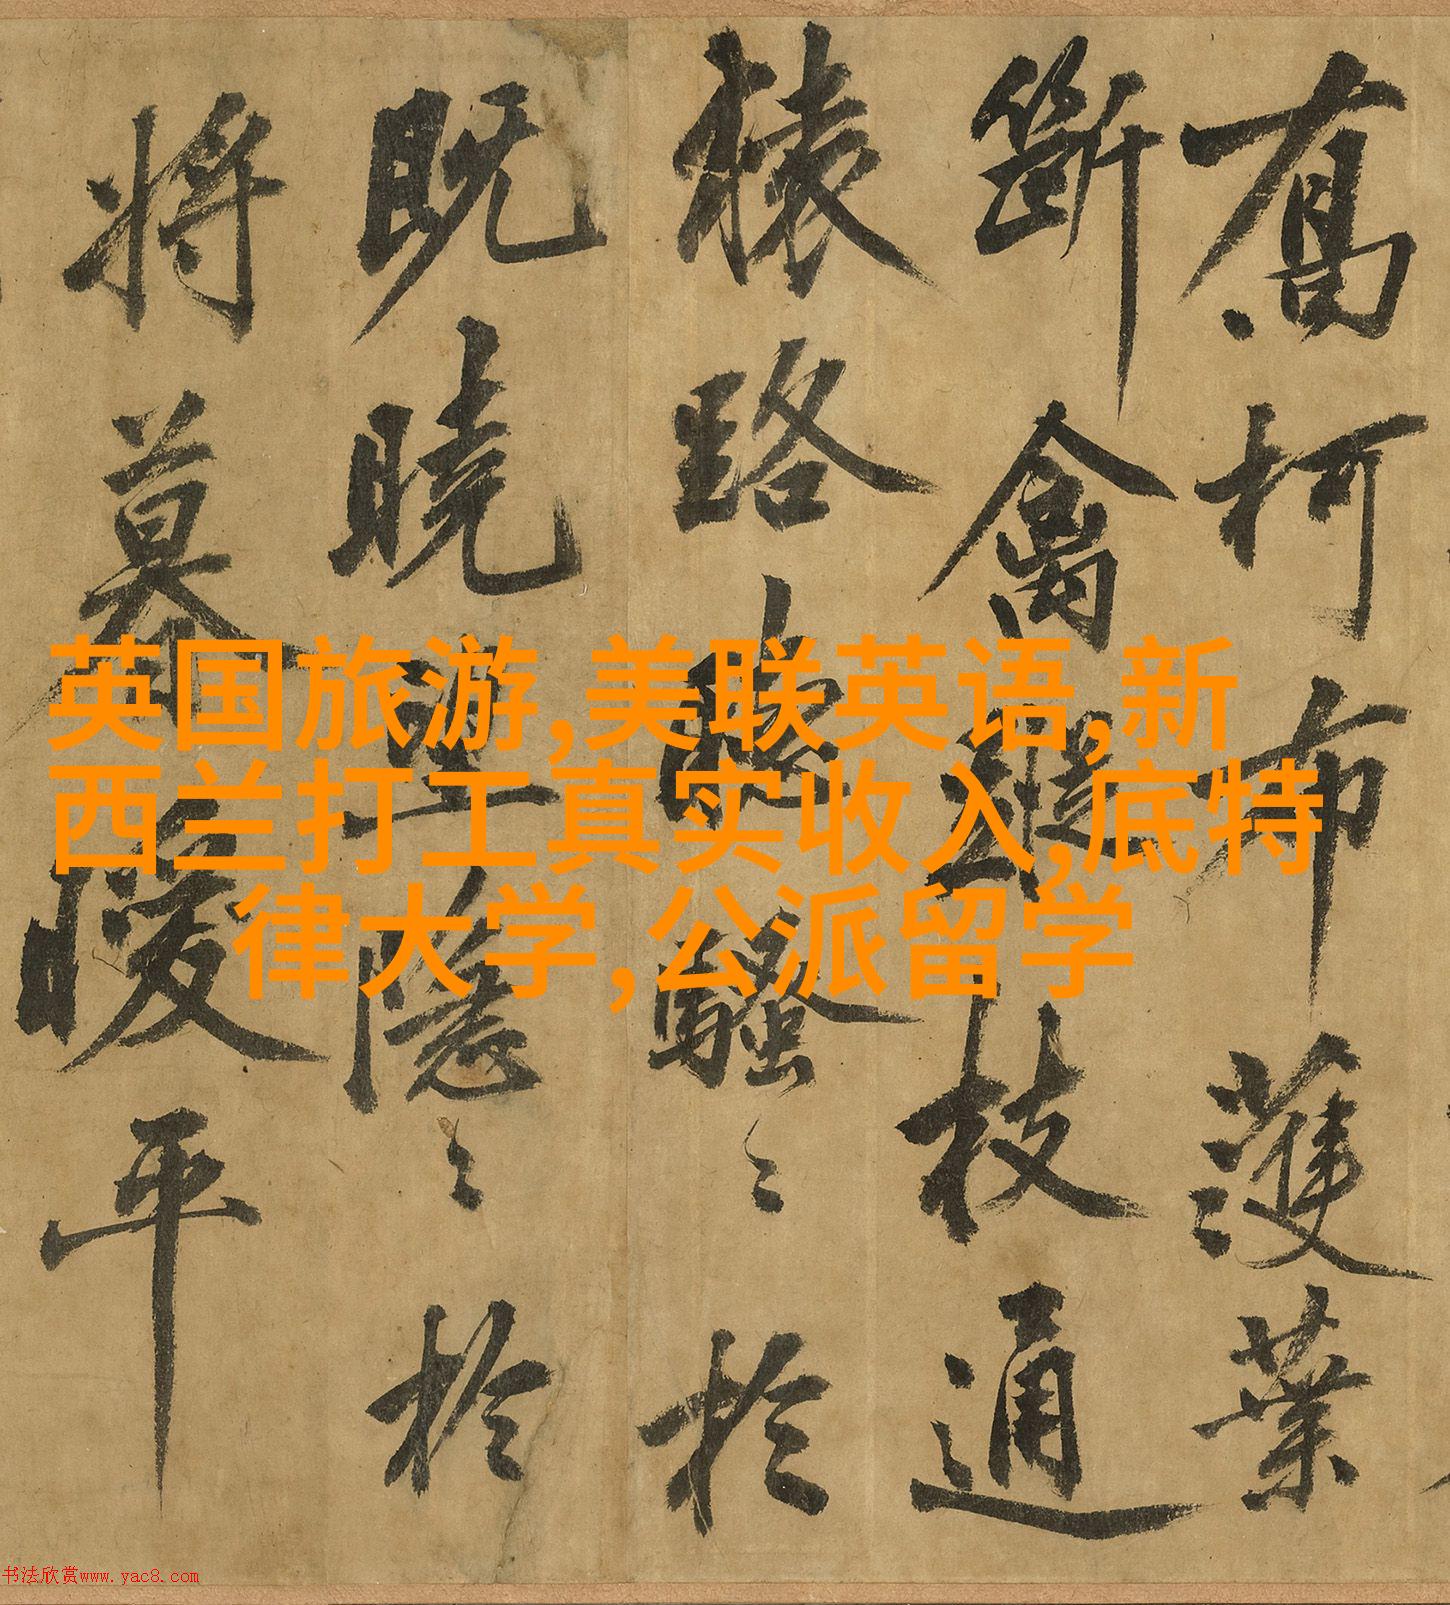 喬柯布濩葉
斷禽蹤枝通
猿路聽騷〻於
既曉望隱〻於
將暮暖平
英国旅游,美联英语,新
西兰打工真实收入,底特
律大学,公派留学
书法欣赏www.yac8.com